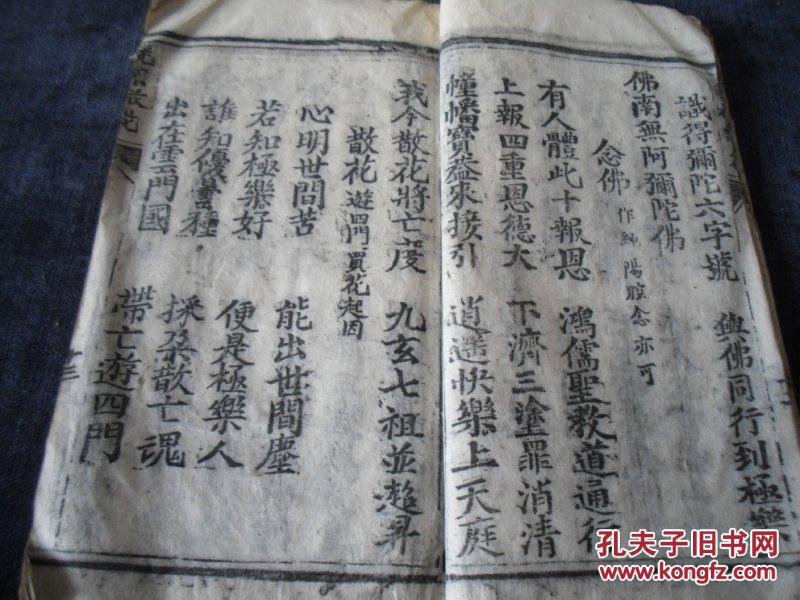 識得彌陀六字號 與佛同行到極樂
佛南無阿彌陀佛
念佛 作純陽腔念亦可
有人體此十報恩 鴻儒聖教道通行
上報四重恩德大 下濟三塗罪消清
幢幡寶蓋來接引 逍遙快樂上天庭
我今散花將亡度 九玄七祖並超昇
散花 遊四門買花起因
心明世間苦 能出世間塵
若知極樂好 便是極樂人
誰知優曇種 採朶散亡魂
出在雲門國 帶亡遊四門
散花
十三
孔夫子旧书网
www.kongfz.com